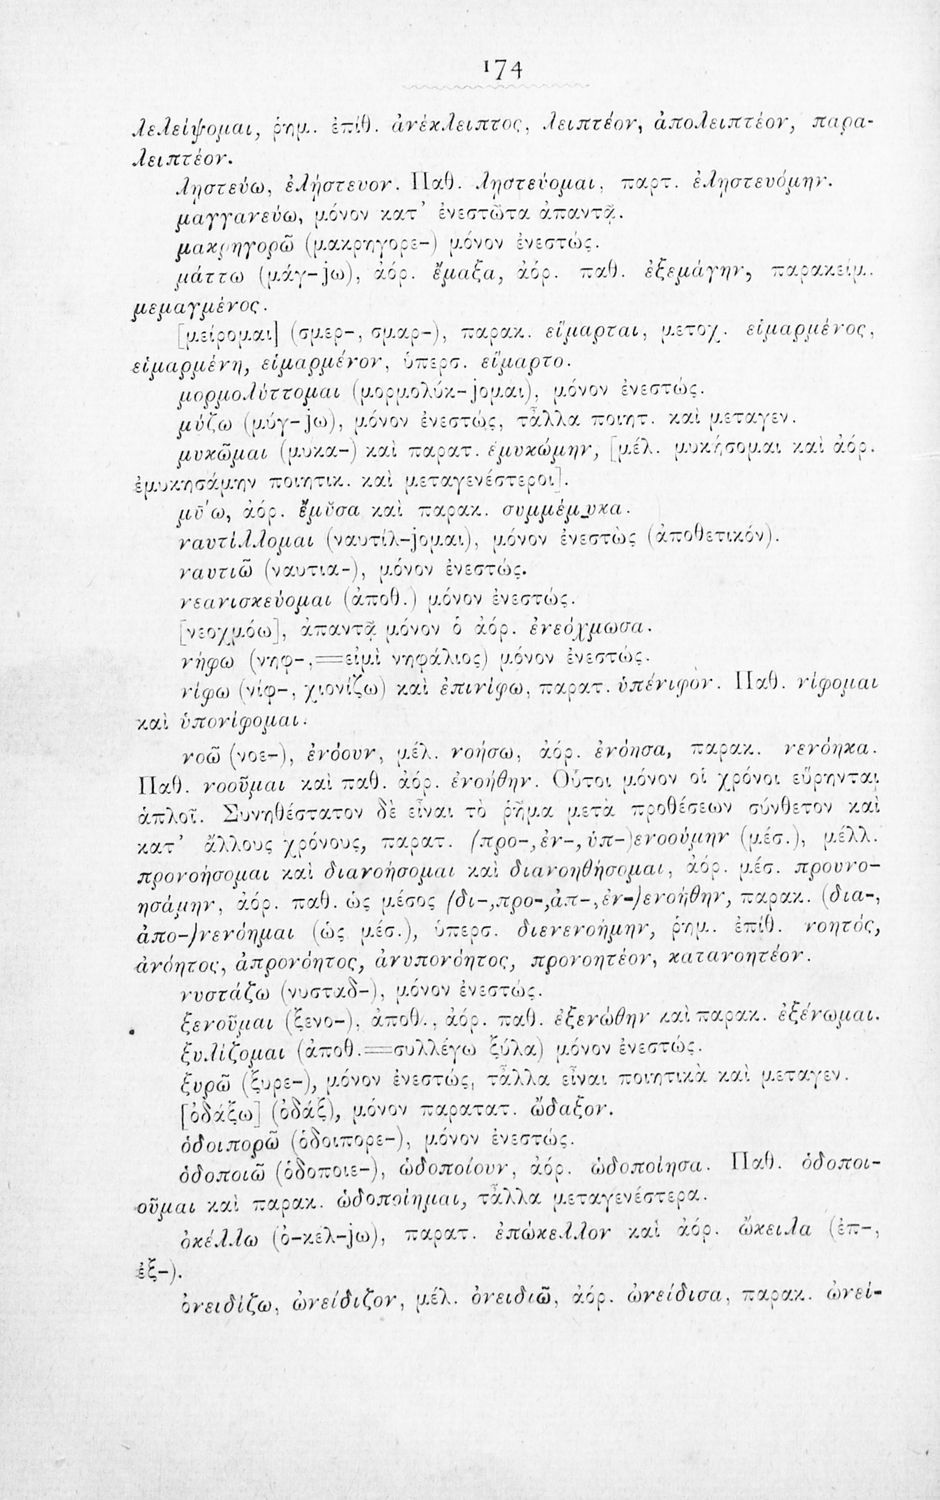 174
λελείψομαι, ῥημ. ἐπίθ. ἀνέκλειπτος, λειπτέον, ἀπολειπτέον, παρα-
λειπτέον.
λῃστεύω, ἐλῄστευον. Παθ. λῃστεύομαι, παρτ. ἐλῃστευόμην.
μαγγανεύω, μόνον κατ’ ἐνεστῶτα ἀπαντᾷ.
μακρηγορῶ (μακρηγορε-) μόνον ἐνεστώς.
μάττω (μάγ-jω), ἀόρ. ἔμαξα, ἀόρ. παθ. ἐξεμάγην, παρακείμ.
μεμαγμένος.
[μείρομαι] (σμερ-, σμαρ-), παρακ. εἵμαρται, μετοχ. εἱμαρμένος,
εἱμαρμένη, εἱμαρμένον, ὑπερσ. εἵμαρτο.
μορμολύττομαι (μορμολύκ-jομαι), μόνον ἐνεστώς.
μύζω (μύγ-jω), μόνον ἐνεστώς, τἆλλα ποιητ. καὶ μεταγεν.
μυκῶμαι (μυκα-) καὶ παρατ. ἐμυκώμην, [μέλ. μυκήσομαι καὶ ἀόρ.
ἐμυκησάμην ποιητικ. καὶ μεταγενέστεροι].
μύω, ἀόρ. ἔμυσα καὶ παρακ. συμμέμυκα.
ναυτίλλομαι (ναυτίλ-jομαι), μόνον ἐνεστὼς (ἀποθετικόν).
ναυτιῶ (ναυτια-), μόνον ἐνεστώς.
νεανισκεύομαι (ἀποθ.) μόνον ἐνεστώς.
[νεοχμόω], ἀπαντᾷ μόνον ὁ ἀόρ. ἐνεόχμωσα.
νήφω (νηφ-,=εἰμὶ νηφάλιος) μόνον ἐνεστώς.
νίφω (νίφ-, χιονίζω) καὶ ἐπινίφω, παρατ. ὑπένιφον. Παθ. νίφομαι
καὶ ὑπονίφομαι.
νοῶ (νοε-), ἐνόουν, μέλ. νοήσω, ἀόρ. ἐνόησα, παρακ. νενόηκα.
Παθ. νοοῦμαι καὶ παθ. ἀόρ. ἐνοήθην. Οὗτοι μόνον οἱ χρόνοι εὕρηνται
ἁπλοῖ. Συνηθέστατον δὲ εἶναι τὸ ῥῆμα μετὰ προθέσεων σύνθετον καὶ
κατ’ ἄλλους χρόνους, παρατ. (προ-, ἐν-, ὑπ-)ενοούμην (μέσ.), μέλλ.
προνοήσομαι καὶ διανοήσομαι καὶ διανοηθήσομαι, ἀόρ. μέσ. προυνο-
ησάμην, ἀόρ. παθ. ὡς μέσος (δι-,προ-,ἀπ-,ἐν-)ενοήθην, παρακ. (δια-,
ἀπο-)νενόημαι (ὡς μέσ.), ὑπερσ. διενενοήμην, ῥημ. ἐπίθ. νοητός,
ἀνόητος, ἀπρονόητος, ἀνυπονόητος, προνοητέον, κατανοητέον.
νυστάζω (νυσταδ-), μόνον ἐνεστώς.
ξενοῦμαι (ξενο-), ἀποθ., ἀόρ. παθ. ἐξενώθην καὶ παρακ. ἐξένωμαι.
ξυλίζομαι (ἀποθ.=συλλέγω ξύλα) μόνον ἐνεστώς.
ξυρῶ (ξυρε-), μόνον ἐνεστώς, τἆλλα εἶναι ποιητικὰ καὶ μεταγεν.
[ὀδάξω] (ὀδάξ), μόνον παρατατ. ὤδαξον.
ὁδοιπορῶ (ὁδοιπορε-), μόνον ἐνεστώς.
ὁδοποιῶ (ὁδοποιε-), ὡδοποίουν, ἀόρ. ὡδοποίησα. Παθ. ὁδοποι-
οῦμαι καὶ παρακ. ὡδοποίημαι, τἆλλα μεταγενέστερα.
ὀκέλλω (ὀ-κέλ-jω), παρατ. ἐπώκελλον καὶ ἀόρ. ὤκειλα (ἐπ-,
ἐξ-).
ὀνειδίζω, ὠνείδιζον, μέλ. ὀνειδιῶ, ἀόρ. ὠνείδισα, παρακ. ὠνεί-